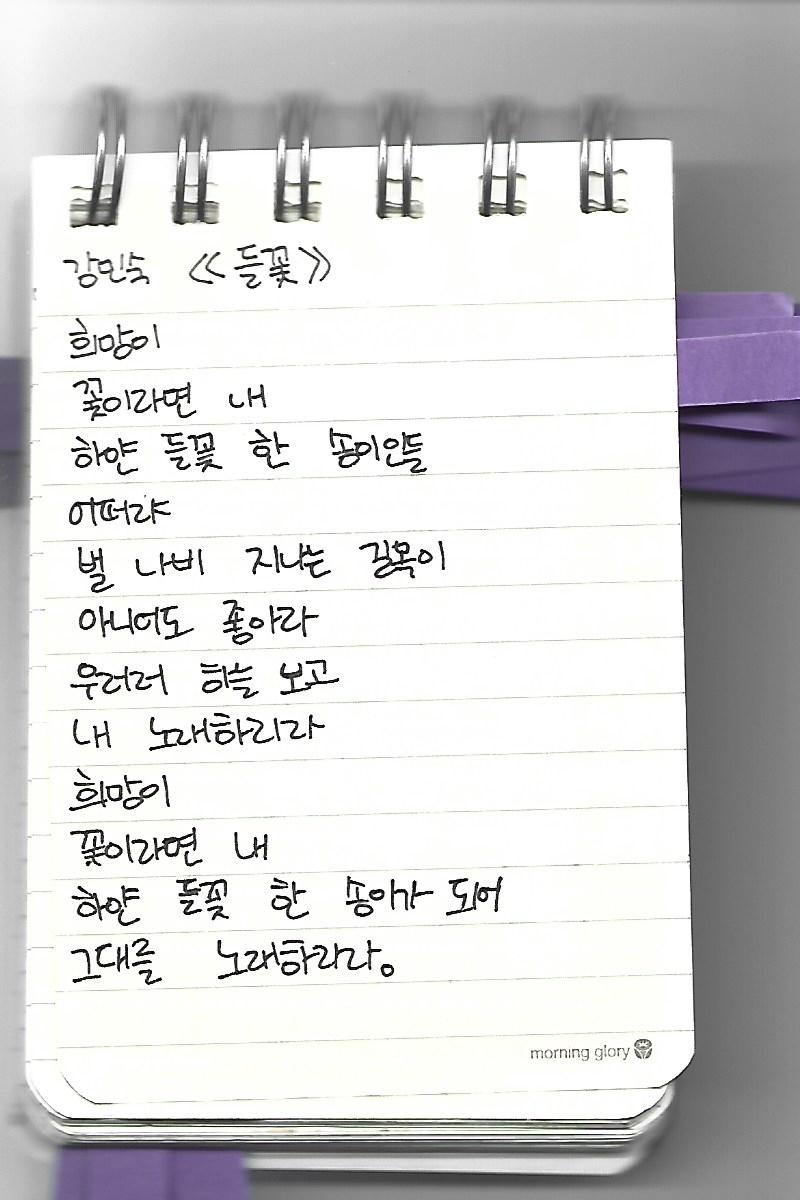 강민숙 《들꽃》
희망이
꽃이라면 내
하얀 들꽃 한 송이인들
어떠랴
벌 나비 지나는 길목이
아니어도 좋아라
우러러 하늘 보고
내 노래하리라
희망이
꽃이라면 내
하얀 들꽃 한 송이가 되어
그대를 노래하리라。
morning glory